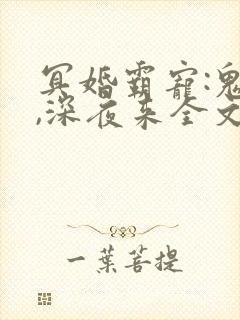 冥婚霸宠:鬼
,深夜来全文
一葉菩提